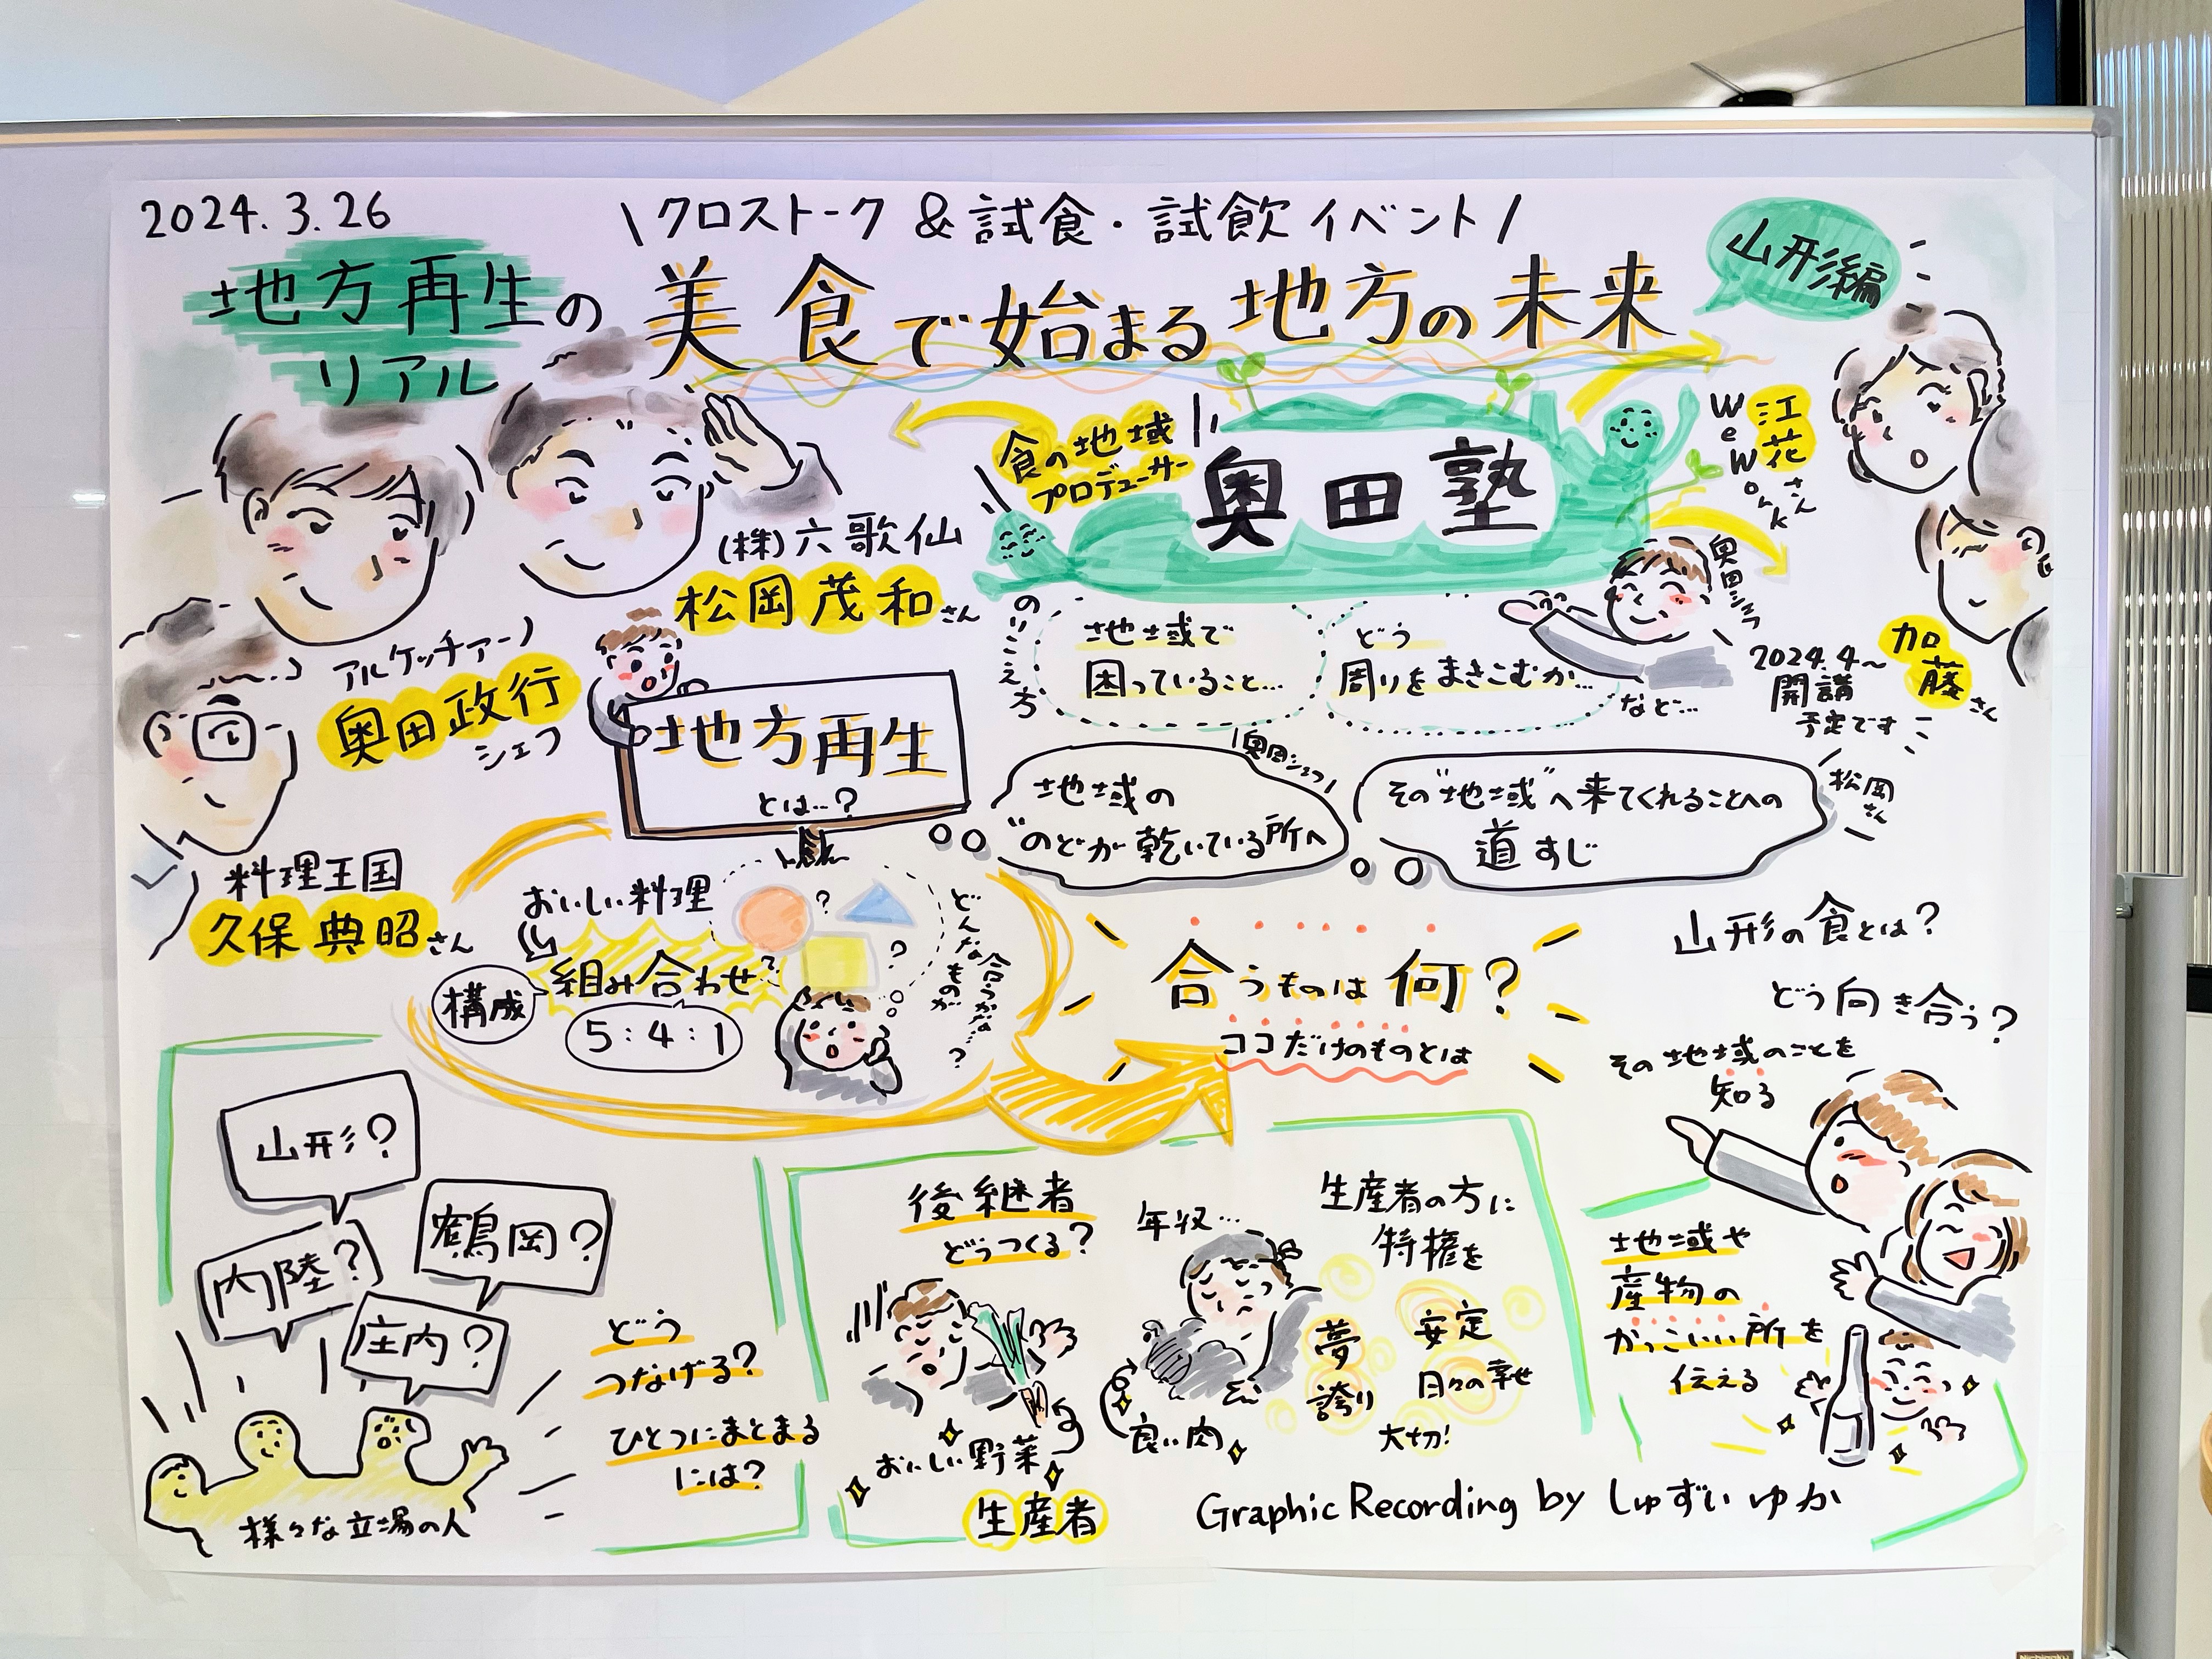 2024.3.26
\クロストーク &試食・試飲イベント/
山形編
地方再生の
リアル
美食で始まる地方の未来
食の地域
プロデューサー
奥田塾
WeWork
江花さん
加藤さん
(株)六歌仙
松岡茂和さん
アルケッチァーノ
奥田政行
シェフ
料理王国
久保典昭さん
奥田シェフ
のりこえ方
地域で
困っていること…
どう
周りをまきこむか…
など…
2024.4~
開講
予定です
地方再生
とは…?
奥田シェフ
地域の
"のどが乾いている所へ
その"地域"へ来てくれることへの
道すじ
松岡さん
おいしい料理
構成
組み合わせ
5:4:1
どんなものが
合うかな?
合うものは何?
ココだけのものとは
山形の食とは?
どう向き合う?
その地域のことを
知る
山形?
鶴岡?
内陸?
庄内?
様々な立場の人
どう
つなげる?
ひとつにまとまる
には?
後継者
どうつくる?
おいしい野菜
生産者
年収…
良い肉
生産者の方に
特権を
夢
安定
誇り
日々の幸せ
大切!
地域や
産物の
かっこいい所を
伝える
Graphic Recording by しゅずい ゆか